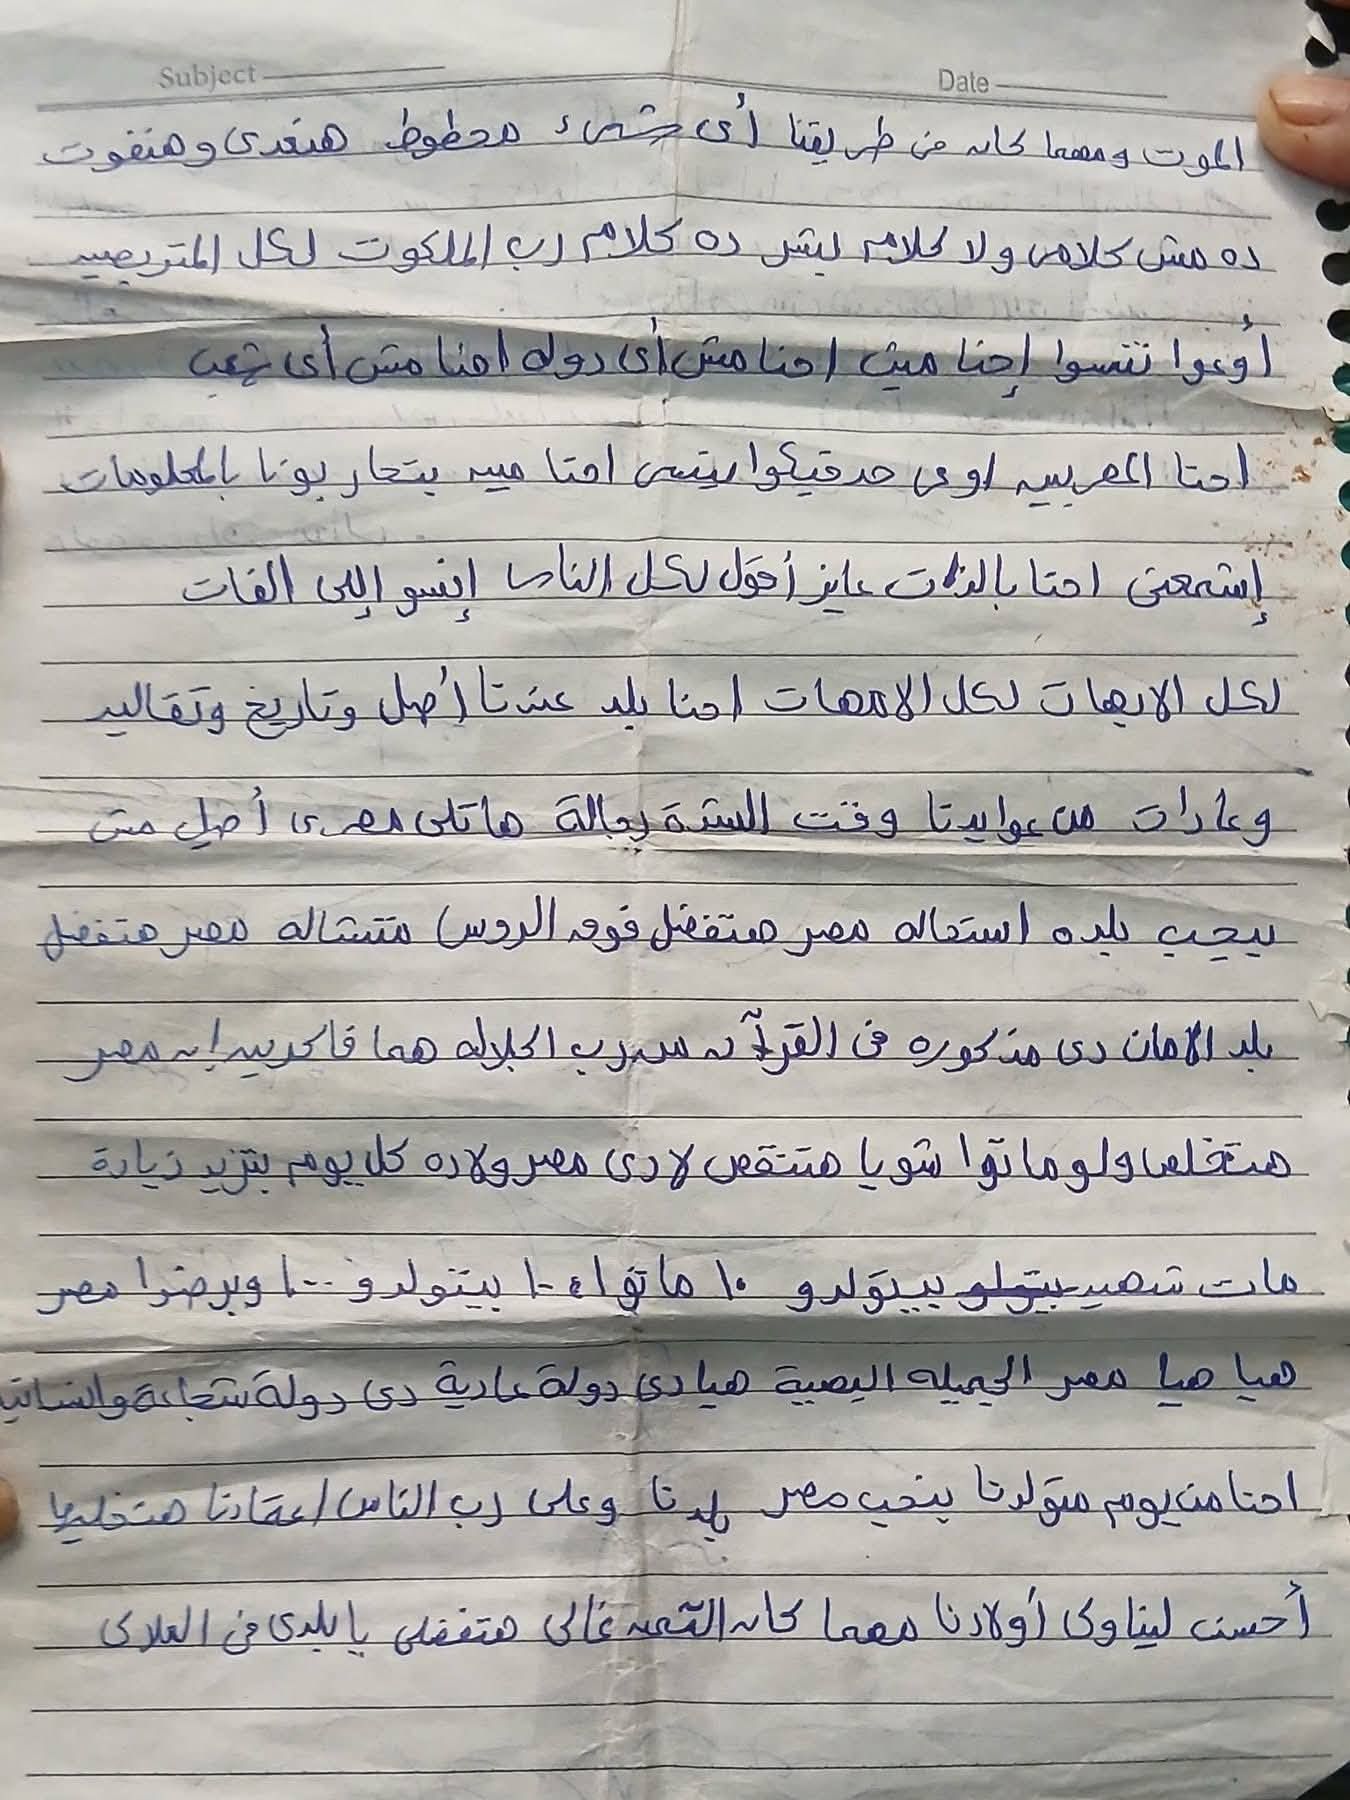 Subject Date
الموت ومهما كان فى طريقنا أى شىء محطوط هنعدى وهنفوت
ده مش كلامى ولا كلام بشر ده كلام رب الملكوت لكل المتربصين
أوعوا تنسوا إحنا مين احنا مش أى دوله احنا مش أى شعب
احنا المصريين اوعى حد فيكوا ينسى احنا مين بتحاربونا بالمعلومات
إشمعنى احنا بالذات عايز أقول لكل الناس إنسو إللى الفات
لكل الابهات لكل الامهات احنا بلد عندنا أصل وتاريخ وتقاليد
وعادات من عوايدنا وقت الشدة رجالة هاتلى مصرى أصلى مش
بيحب بلده استحاله مصر هتفضل فوق الروس متنشاله مصر هتفضل
بلد الامان دى مذكوره فى القرآن من رب الجلاله هما فاكرين ان مصر
هتخلص ولو ماتوا شويا هتنقص لا دى مصر ولاده كل يوم بتزيد زيادة
مات شهيد بيتولو بيتولدو ١٠ ماتوا ١٠ بيتولدو ١٠٠ وبرضوا مصر
هيا هيا مصر الجميله البهية هيا دى دولة عادية دى دولة شجاعة وإنسانية
احنا من يوم متولدنا بنحب مصر بلدنا وعلى رب الناس اعتمادنا هتخليها
أحسن لينا وى أولادنا مهما كان التمن غالى هتفضلى يا بلدى فى العلالى